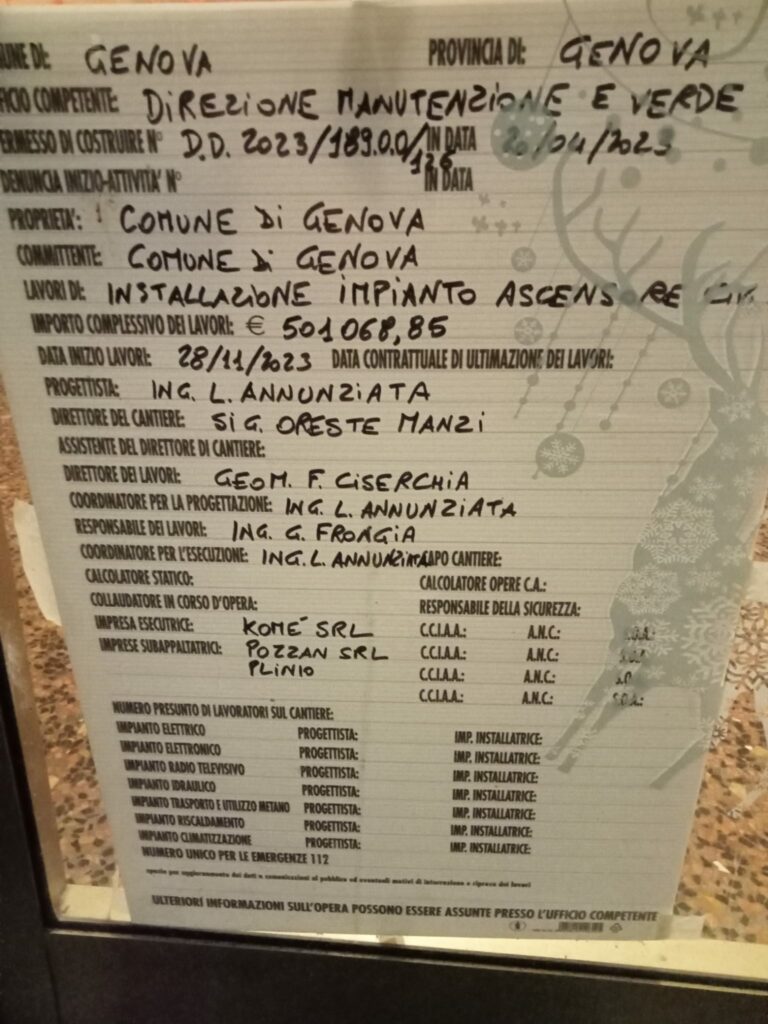 UNE DI: GENOVA PROVINCIA DI: GENOVA
FICIO COMPETENTE: DIREZIONE MANUTENZIONE E VERDE
ERMESSO DI COSTRUIRE N° D.D. 2023/189.0.0/126 IN DATA 20/04/2023
DENUNCIA INIZIO-ATTIVITA' N° IN DATA
PROPRIETA': COMUNE Di GENOVA
COMMITTENTE: COMUNE Di GENOVA
LAVORI DI: INSTALLAZIONE IMPIANTO ASCENSORE
IMPORTO COMPLESSIVO DEI LAVORI: € 501068,85
DATA INIZIO LAVORI: 28/11/2023 DATA CONTRATTUALE DI ULTIMAZIONE DEI LAVORI:
PROGETTISTA: ING. L. ANNUNZIATA
DIRETTORE DEL CANTIERE: SIG. ORESTE MANZI
ASSISTENTE DEL DIRETTORE DI CANTIERE:
DIRETTORE DEI LAVORI: GEOM. F. CISERCHIA
COORDINATORE PER LA PROGETTAZIONE: ING. L. ANNUNZIATA
RESPONSABILE DEI LAVORI: ING. G. FRONGIA
COORDINATORE PER L'ESECUZIONE: ING. L. ANNUNZIATA CAPO CANTIERE:
CALCOLATORE STATICO: CALCOLATORE OPERE C.A.:
COLLAUDATORE IN CORSO D'OPERA: RESPONSABILE DELLA SICUREZZA:
IMPRESA ESECUTRICE: KOMÉ SRL C.C.I.A.A.: A.N.C.: S.O.A.:
IMPRESE SUBAPPALTATRICI: POZZAN SRL C.C.I.A.A.: A.N.C.: S.O.A.
PLINIO C.C.I.A.A.: A.N.C.: S.O
C.C.I.A.A.: A.N.C.: S.O.A.:
NUMERO PRESUNTO DI LAVORATORI SUL CANTIERE:
IMPIANTO ELETTRICO PROGETTISTA: IMP. INSTALLATRICE:
IMPIANTO ELETTRONICO PROGETTISTA: IMP. INSTALLATRICE:
IMPIANTO RADIO TELEVISIVO PROGETTISTA: IMP. INSTALLATRICE:
IMPIANTO IDRAULICO PROGETTISTA: IMP. INSTALLATRICE:
IMPIANTO TRASPORTO E UTILIZZO METANO PROGETTISTA: IMP. INSTALLATRICE:
IMPIANTO RISCALDAMENTO PROGETTISTA: IMP. INSTALLATRICE:
IMPIANTO CLIMATIZZAZIONE PROGETTISTA: IMP. INSTALLATRICE:
NUMERO UNICO PER LE EMERGENZE 112
spazio per aggiornamento dei dati o comunicazioni al pubblico ed eventuali motivi di interruzione e ripresa dei lavori
ULTERIORI INFORMAZIONI SULL'OPERA POSSONO ESSERE ASSUNTE PRESSO L'UFFICIO COMPETENTE